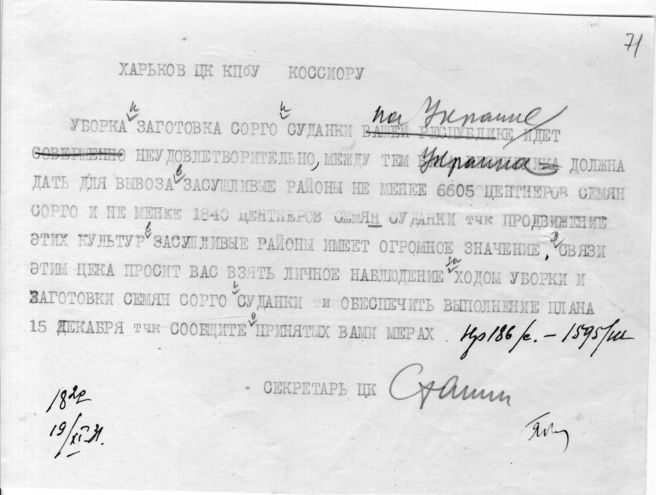 71
ХАРЬКОВ ЦК КПбУ КОССИОРУ
на Украине
УБОРКА и ЗАГОТОВКА СОРГО и СУДАНКИ ВАШЕЙ РЕСПУБЛИКЕ ИДЕТ
СОВЕРШЕННО НЕУДОВЛЕТВОРИТЕЛЬНО, МЕЖДУ ТЕМ Украина ДОЛЖНА
ДАТЬ ДЛЯ ВЫВОЗА в ЗАСУШЛИВЫЕ РАЙОНЫ НЕ МЕНЕЕ 6605 ЦЕНТНЕРОВ СЕМЯН
СОРГО И НЕ МЕНЕЕ 1840 ЦЕНТНЕРОВ СЕМЯН СУДАНКИ ТЧК ПРОДВИЖЕНИЕ
ЭТИХ КУЛЬТУР в ЗАСУШЛИВЫЕ РАЙОНЫ ИМЕЕТ ОГРОМНОЕ ЗНАЧЕНИЕ. в СВЯЗИ
ЭТИМ ЦЕКА ПРОСИТ ВАС ВЗЯТЬ ЛИЧНОЕ НАБЛЮДЕНИЕ за ХОДОМ УБОРКИ И
ЗАГОТОВКИ СЕМЯН СОРГО и СУДАНКИ И ОБЕСПЕЧИТЬ ВЫПОЛНЕНИЕ ПЛАНА
15 ДЕКАБРЯ ТЧК СООБЩИТЕ о ПРИНЯТЫХ ВАМИ МЕРАХ. Нр 186/с. – 1595/ш
СЕКРЕТАРЬ ЦК Сталин
18
19/XI-31.